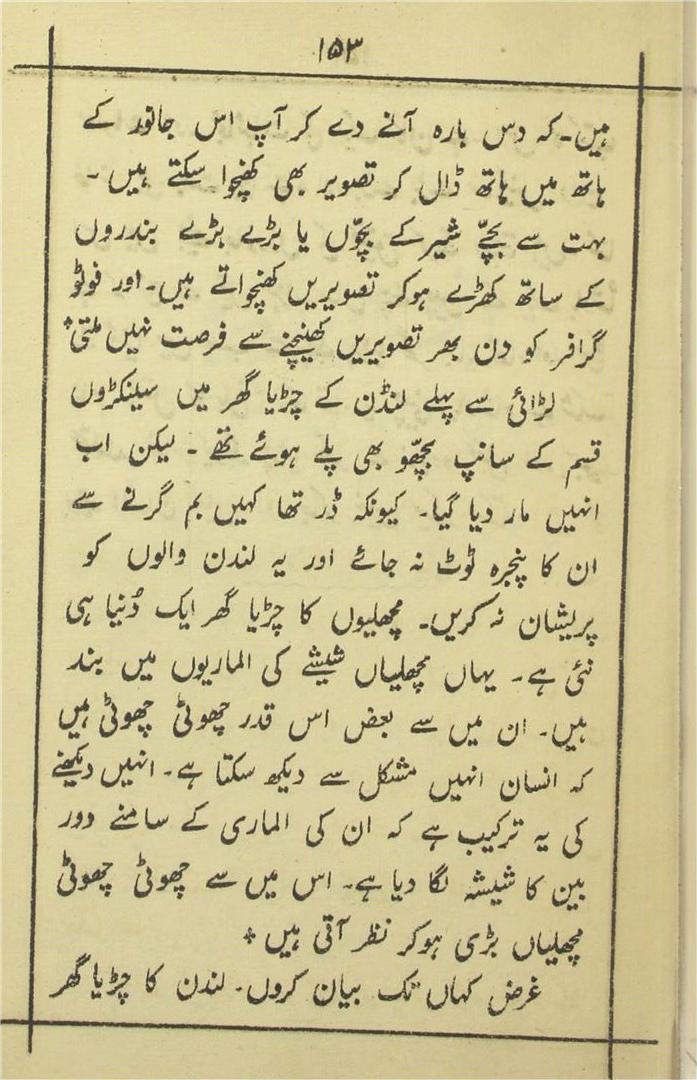 ۱۵۳
ہیں۔ کہ دس بارہ آنے دے کر آپ اس جانور کے
ہاتھ میں ہاتھ ڈال کر تصویر بھی کھنچوا سکتے ہیں۔
بہت سے بچّے شیر کے بچّوں یا بڑے بڑے بندروں
کے ساتھ کھڑے ہوکر تصویریں کھنچواتے ہیں۔ اور فوٹو
گرافر کو دن بھر تصویریں کھینچنے سے فرصت نہیں ملتی٭
لڑائی سے پہلے لنڈن کے چڑیا گھر میں سینکڑوں
قسم کے سانپ بچھّو بھی پلے ہوئے تھے۔ لیکن اب
انہیں مار دیا گیا۔ کیونکہ ڈر تھا کہیں بم گرنے سے
ان کا پنجرہ ٹوٹ نہ جائے اور یہ لندن والوں کو
پریشان نہ کریں۔ مچھلیوں کا چڑیا گھر ایک دُنیا ہی
نئی ہے۔ یہاں مچھلیاں شیشے کی الماریوں میں بند
ہیں۔ ان میں سے بعض اس قدر چھوٹی چھوٹی ہیں
کہ انسان انہیں مشکل سے دیکھ سکتا ہے۔ انہیں دیکھنے
کی یہ ترکیب ہے کہ ان کی الماری کے سامنے دور
بین کا شیشہ لگا دیا ہے۔ اس میں سے چھوٹی چھوٹی
مچھلیاں بڑی ہوکر نظر آتی ہیں ٭
غرض کہاں تک بیان کروں۔ لندن کا چڑیا گھر